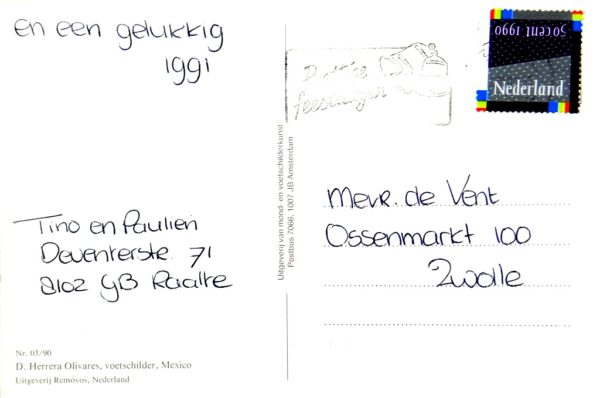 en een gelukkig
1991
Tino en Paulien
Deventerstr. 71
8102 GB Raalte
Nr. 03/90
D. Herrera Olivares, voetschilder, Mexico
Uitgeverij Removos, Nederland
Uitgeverij van mond- en voetschilderkunst
Postbus 7066, 1007 JB Amsterdam
Prettige
feestdagen
50 cent 1990
Nederland
Mevr. de Vent
Ossenmarkt 100
Zwolle